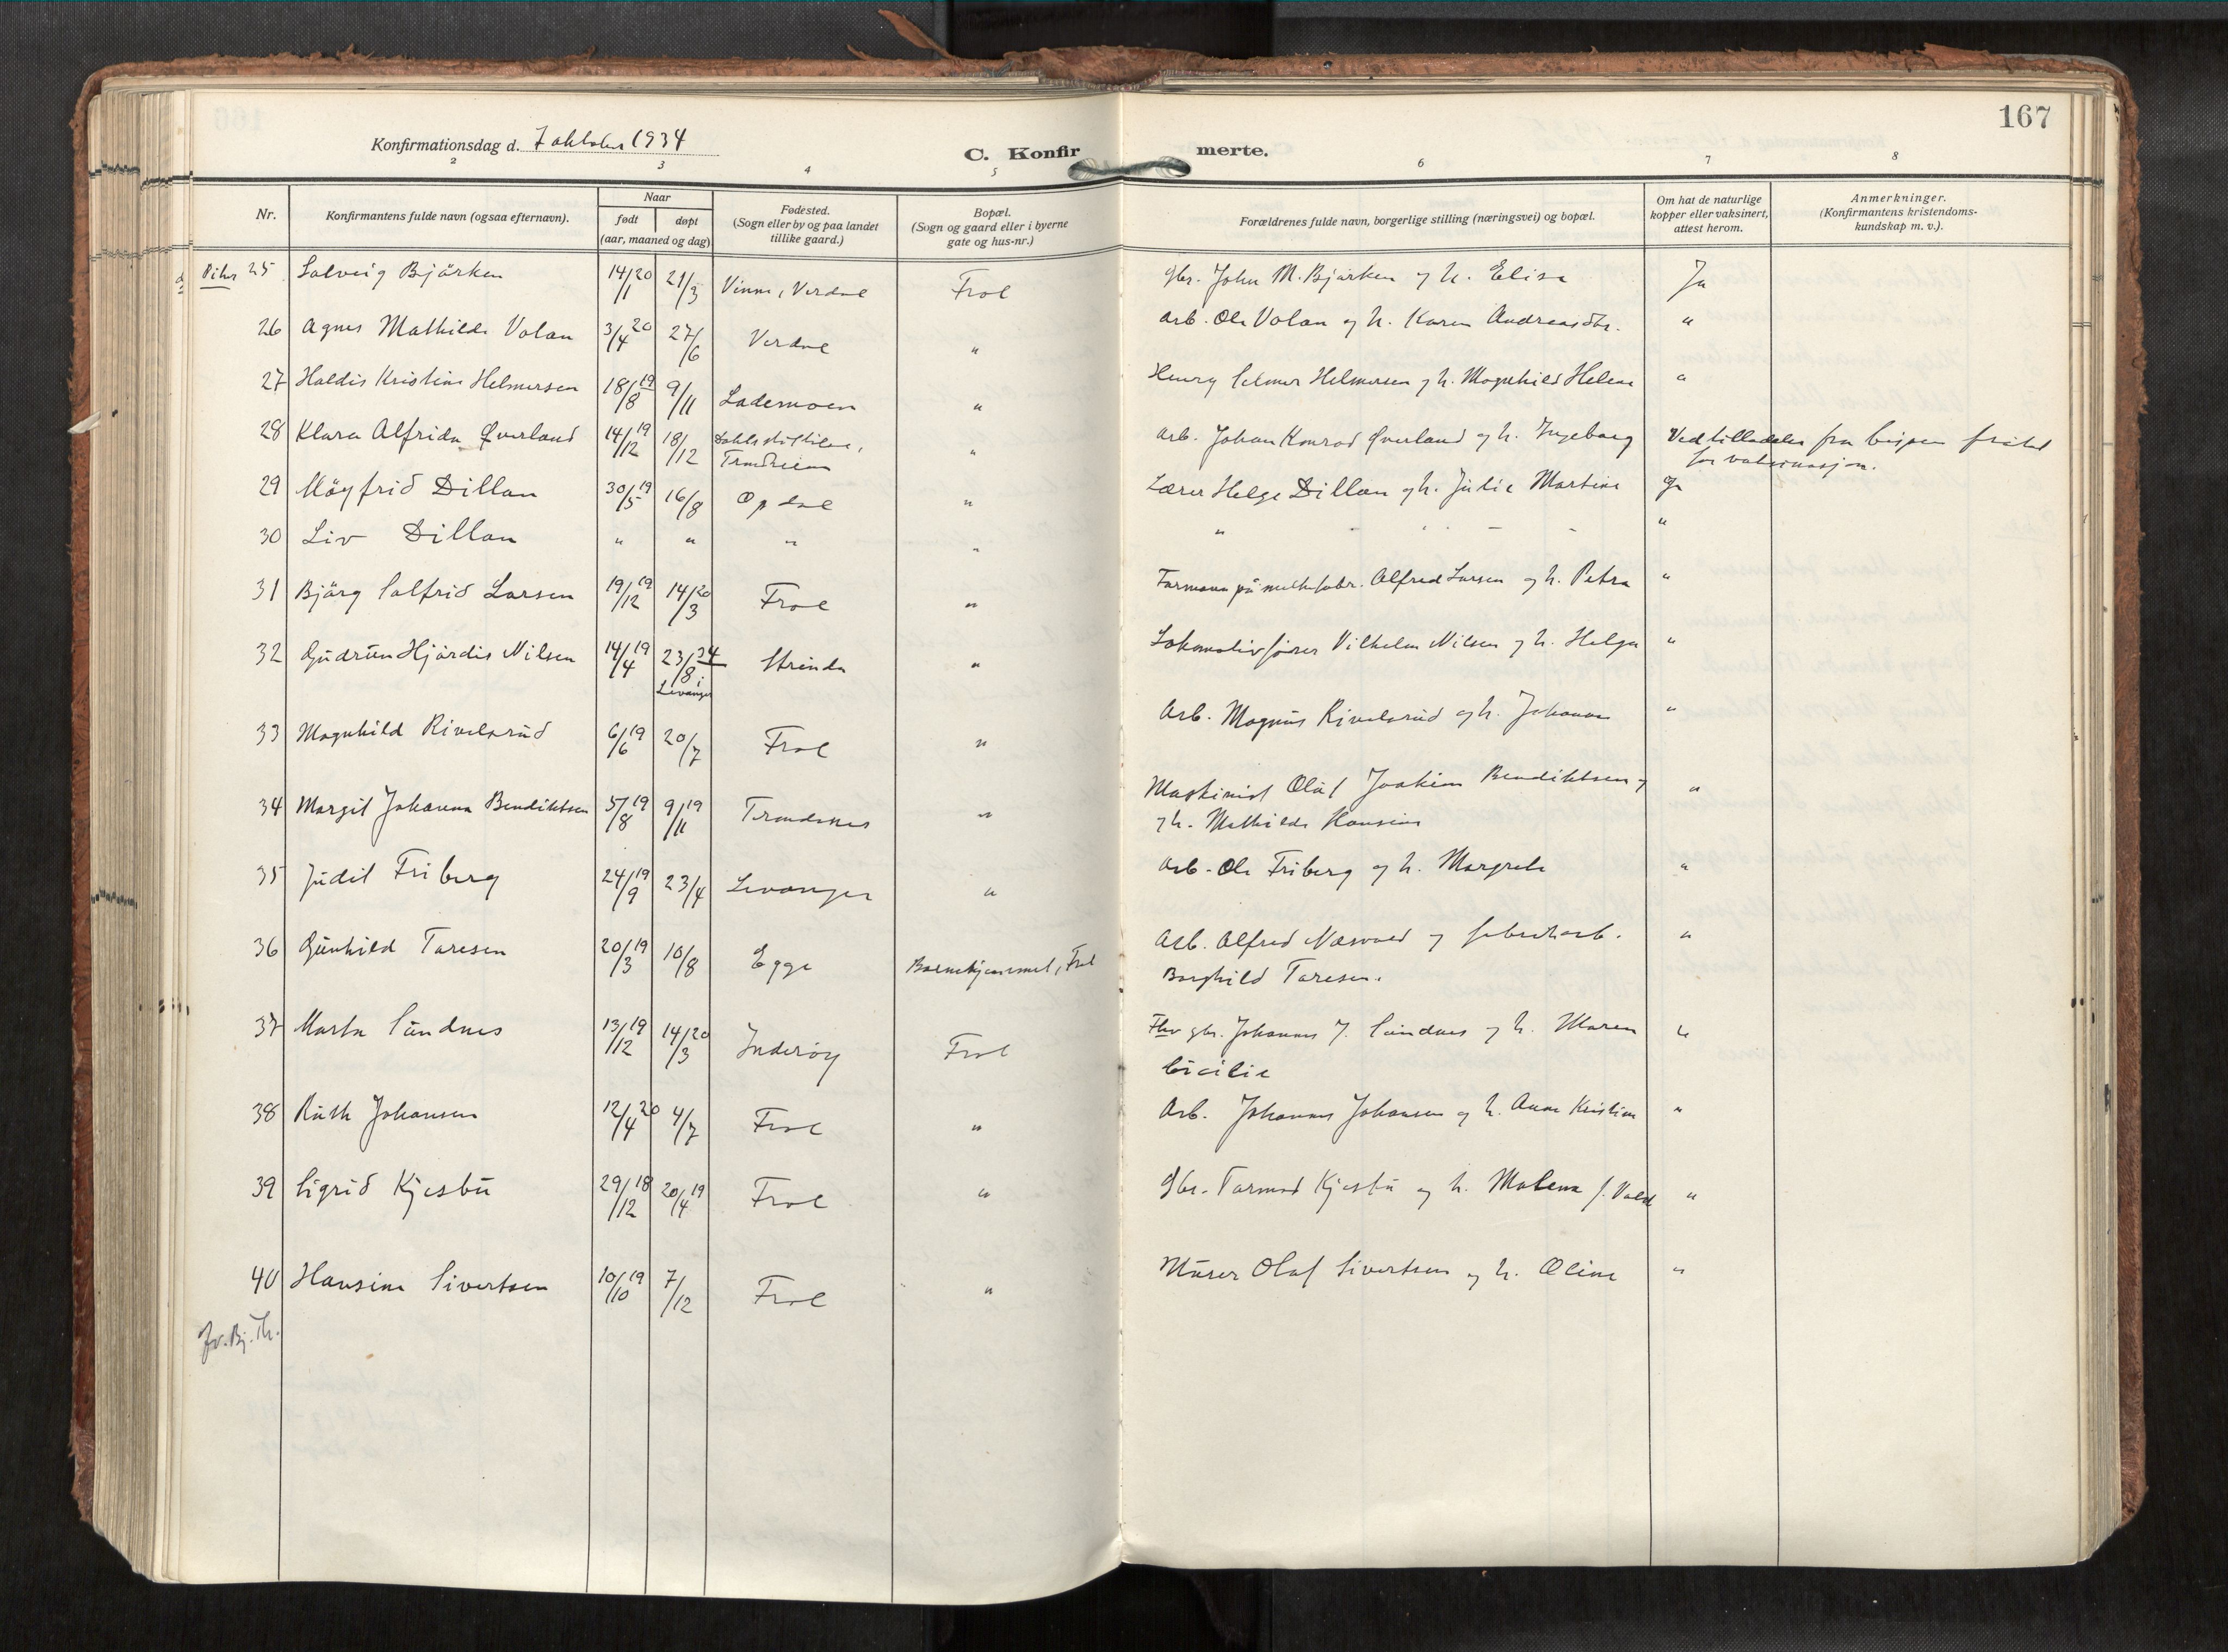 167
Konfirmationsdag d. 7 oktober 1934
C. Konfirmerte.
2 3 4 5 6 7 8
Nr. Konfirmantens fulde navn (ogsaa efternavn). Naar født døpt (aar, maaned og dag) Fødested. (Sogn eller by og paa landet tillike gaard.) Bopæl. (Sogn og gaard eller i byerne gate og hus-nr.) Forældrenes fulde navn, borgerlige stilling (næringsvei) og bopæl. Om hat de naturlige kopper eller vaksinert, attest herom. Anmerkninger. (Konfirmantens kristendomskundskap m. v.).
Piker 25 Solveig Bjørken 14/1 20 21/3 Vinne, Verdal Frol gbr. John M. Bjørken og h. Elisa Ja
26 Agnes Mathilde Volan 3/4 20 27/6 Verdal " Arb. Ole Volan og h. Karen Andreasdtr. "
27 Haldis Kristine Helmersen 18/8 19 9/11 Lademoen " Henry Selmer Helmersen og h. Magnhild Helene "
28 Klara Alfrida Øverland 14/12 19 18/12 Dahls stiftelse, Trondheim " Arb. Johan Konrad Øverland og h. Ingeborg Ved tilladelse fra bispen fritat for vaksinasjon.
29 Møyfrid Dillan 30/5 19 16/8 Opdal " Lærer Helge Dillan og h. Julie Martine Ja
30 Liv Dillan " " " " " - - - "
31 Bjørg Solfrid Larsen 19/12 19 14/3 20 Frol " Formann på melkefabr. Alfred Larsen og h. Petra "
32 Gudrun Hjørdis Nilsen 14/4 19 23/8 34 i Levanger Strinda " Lokomotivfører Vilhelm Nilsen og h. Helga "
33 Magnhild Rivelsrud 6/6 19 20/7 Frol " Arb. Magnus Rivelsrud og h. Johanna "
34 Margit Johanna Bendiktsen 5/8 19 9/11 19 Trondenes " Maskinist Olaf Joakim Bendiktsen og
og h. Mathilde Hansine "
35 Judit Friberg 24/9 19 23/4 Levanger " Arb. Ole Friberg og h. Margrete "
36 Gunhild Taresen 20/3 19 10/8 Egge Barnehjemmet, Frol Arb. Alfred Næsvold og fabrikarb.
Borghild Taresen. "
37 Marta Sundnes 13/12 19 14/3 20 Inderøy Frol Fhv gbr. Johannes J. Sundnes og h. Maren
Cicilie "
38 Ruth Johansen 12/4 20 4/7 Frol " Arb. Johannes Johansen og h. Anna Kristine "
39 Sigrid Kjesbu 29/12 18 20/4 19 Frol " Gbr. Tormod Kjesbu og h. Malena f. Vold "
40 Hansine Sivertsen 10/10 19 7/12 Frol " Murer Olaf Sivertsen og h. Oline "
Jv. Bj. Th.